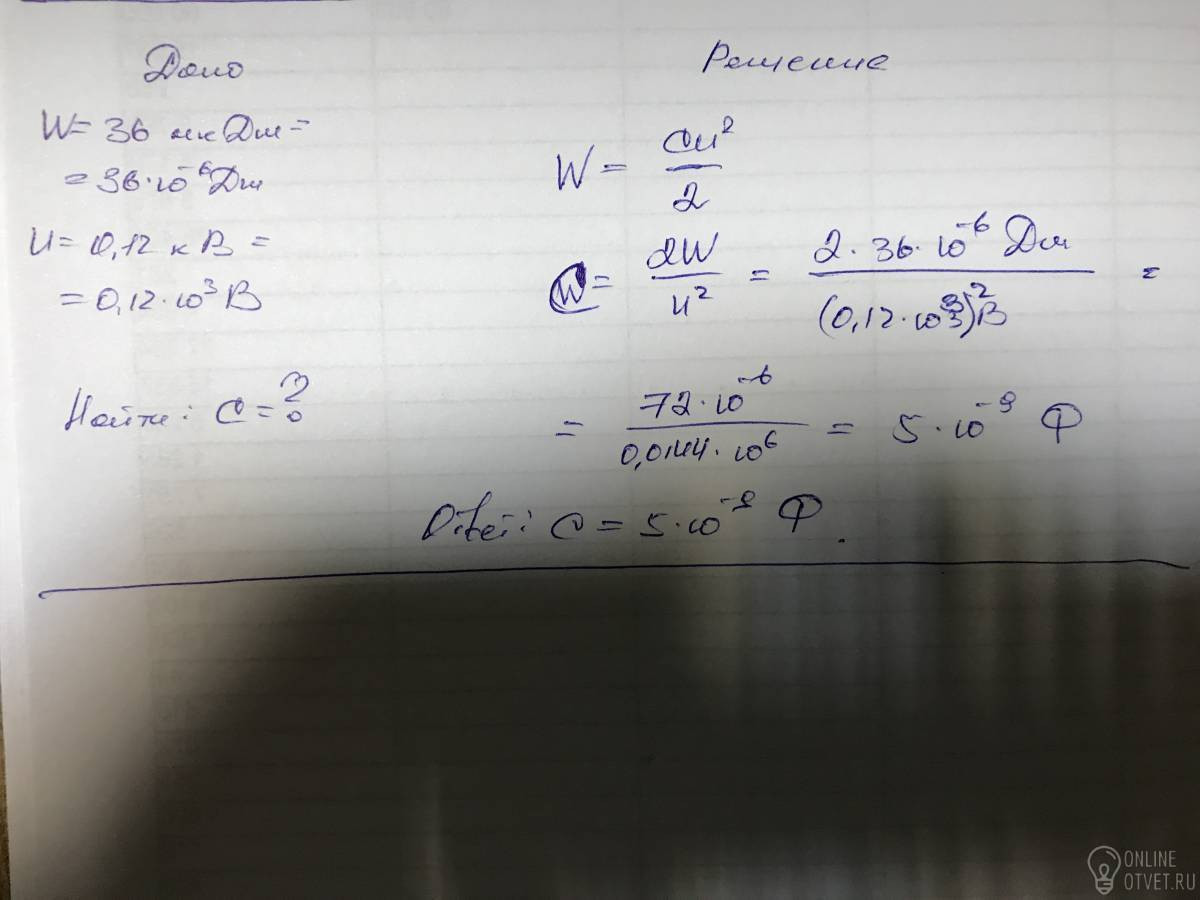 Дано
W= 36 мкДж=
= 36·10⁻⁶Дж
U= 0,12 кВ =
= 0,12·10³ В
Найти: C = ?
Решение
W = CU²/2
C = 2W/U² = 2·36·10⁻⁶ Дж/(0,12·10³)²В =
= 72·10⁻⁶/0,0144·10⁶ = 5·10⁻⁹ Ф
Ответ: C = 5·10⁻⁹ Ф.
ONLINE
OTVET.RU